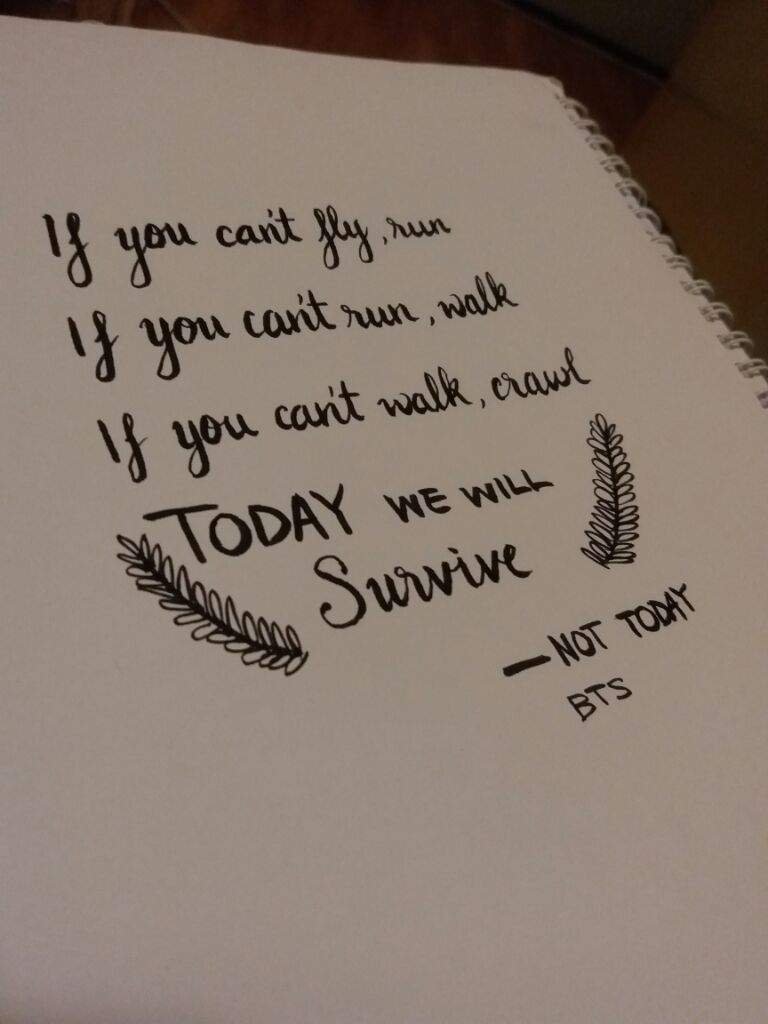 If you can't fly, run
If you can't run, walk
If you can't walk, crawl
TODAY WE WILL
Survive
— NOT TODAY
BTS